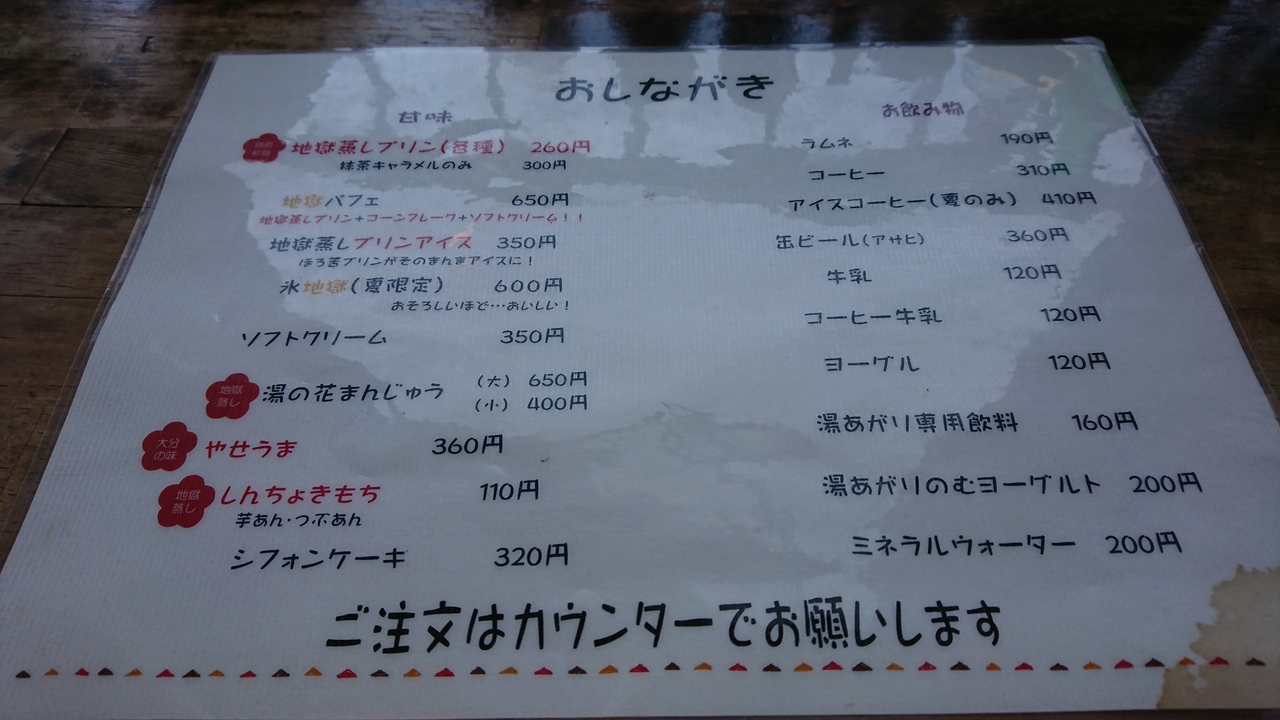 おしながき
甘味
地獄蒸しプリン(各種) 260円
抹茶キャラメルのみ 300円
地獄パフェ 650円
地獄蒸しプリン+コーンフレーク+ソフトクリーム!!
地獄蒸しプリンアイス 350円
ほろ苦プリンがそのまんまアイスに!
氷地獄(夏限定) 600円
おそろしいほど…おいしい!
ソフトクリーム 350円
地獄
蒸し
湯の花まんじゅう (大) 650円
(小) 400円
大分
の味
やせうま 360円
地獄
蒸し
しんちょきもち 110円
芋あん・つぶあん
シフォンケーキ 320円
お飲み物
ラムネ 190円
コーヒー 310円
アイスコーヒー(夏のみ) 410円
缶ビール(アサヒ) 360円
牛乳 120円
コーヒー牛乳 120円
ヨーグル 120円
湯あがり専用飲料 160円
湯あがりのむヨーグルト 200円
ミネラルウォーター 200円
ご注文はカウンターでお願いします